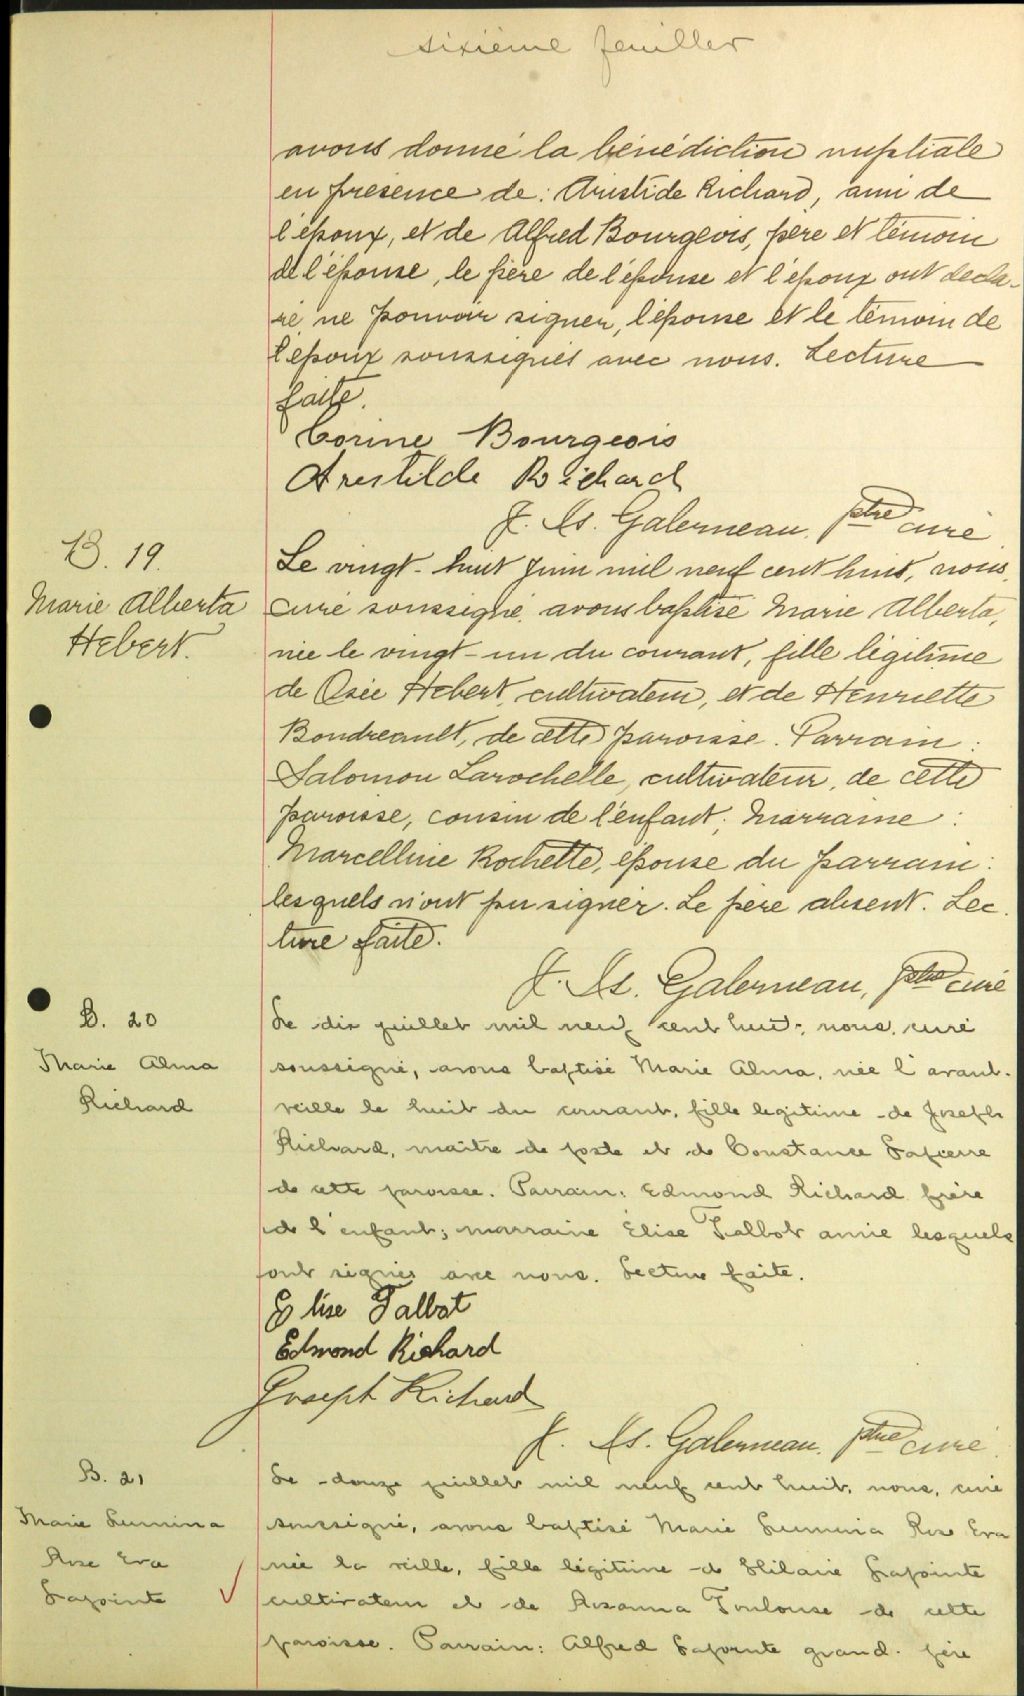 sixième feuillet
avons donné la bénédiction nuptiale
en présence de: Aristide Richard, ami de
l'époux, et de Alfred Bourgeois, père et témoin
de l'épouse, le père de l'épouse et l'époux ont décla-
ré ne pouvoir signer, l'épouse et le témoin de
l'époux soussignés avec nous. Lecture
faite.
Corine Bourgeois
Arestilde Richard
J. Ls. Galerneau, ptre curé
B. 19.
Marie Alberta
Hebert.
Le vingt-huit juin mil neuf cent huit, nous,
curé soussigné, avons baptisé Marie Alberta,
née le vingt-un du courant, fille légitime
de Osée Hebert, cultivateur, et de Henriette
Boudreault, de cette paroisse. Parrain:
Salomon Larochelle, cultivateur, de cette
paroisse, cousin de l'enfant; Marraine:
Marcelline Rochette, épouse du parrain:
lesquels n'ont pu signer. Le père absent. Lec
ture faite.
J. Ls. Galerneau, ptre curé
B. 20
Marie Alma
Richard
Le dix juillet mil neuf cent huit, nous, curé
soussigné, avons baptisé Marie Alma, née l'avant-
veille le huit du courant, fille legitime de Joseph
Richard, maître de poste et de Constance Lapierre
de cette paroisse. Parrain: Edmond Richard frère
de l'enfant; marraine Élise Talbot amie lesquels
ont signés avec nous. Lecture faite.
Elise Talbot
Edmond Richard
Joseph Richard
J. Ls. Galerneau, ptre curé
B. 21
Marie Lumina
Rose Eva
Lapointe
Le douze juillet mil neuf cent huit, nous, curé
soussigné, avons baptisé Marie Lumina Rose Eva
née la veille, fille légitime de Hilaire Lapointe
cultivateur et de Rosanna Toulouse de cette
paroisse. Parrain: Alfred Lapointe grand-père